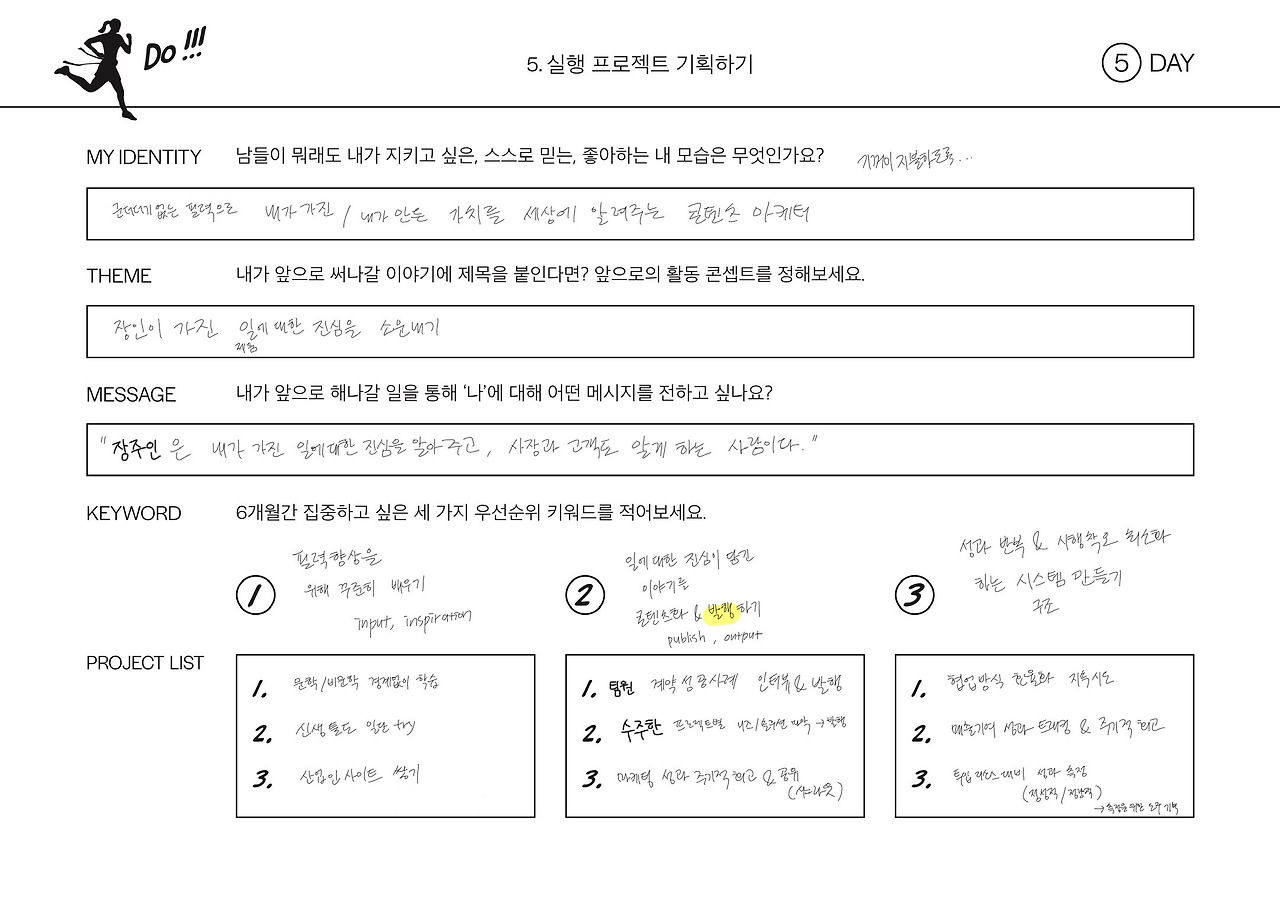 Do !!!
5. 실행 프로젝트 기획하기
5 DAY
MY IDENTITY
남들이 뭐래도 내가 지키고 싶은, 스스로 믿는, 좋아하는 내 모습은 무엇인가요?
기꺼이 지불하도록...
군더더기 없는 필력으로 내가 가진 / 내가 만든 가치를 세상에 알려주는 콘텐츠 마케터
THEME
내가 앞으로 써나갈 이야기에 제목을 붙인다면? 앞으로의 활동 콘셉트를 정해보세요.
장인이 가진 일에 대한 진심을 소문내기
MESSAGE
내가 앞으로 해나갈 일을 통해 ‘나’에 대해 어떤 메시지를 전하고 싶나요?
"장주인은 내가 가진 일에 대한 진심을 알아주고, 시장과 고객도 알게 하는 사람이다."
KEYWORD
6개월간 집중하고 싶은 세 가지 우선순위 키워드를 적어보세요.
1
필력 향상을
위해 꾸준히 배우기
input, inspiration
2
일에 대한 진심이 담긴
이야기를
콘텐츠화 & 발행하기
publish, output
3
성과 반복 & 시행착오 최소화
하는 시스템 만들기
구조
PROJECT LIST
1. 문학/비문학 경계없이 학습
2. 신생 툴도 일단 try
3. 산업인사이트 쌓기
1. 팀원 계약 성공사례 인터뷰 & 발행
2. 수주한 프로젝트별 니즈/솔루션 파악 → 발행
3. 마케팅 성과 주기적 회고 & 공유
(샤라웃)
1. 협업방식 효율화 지속시도
2. 매출기여 성과 트래킹 & 주기적 회고
3. 투입 리소스 대비 성과 측정
(정성적/정량적)
→ 측정을 위한